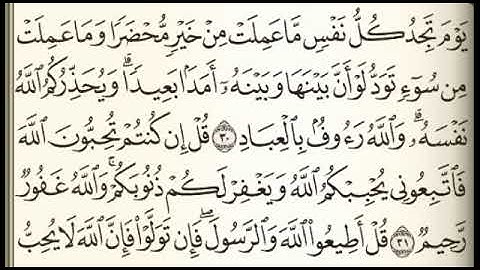 يَوْمَ تَجِدُ كُلُّ نَفْسٍ مَّا عَمِلَتْ مِنْ خَيْرٍ مُّحْضَرًا وَمَا عَمِلَتْ
مِن سُوٓءٍ تَوَدُّ لَوْ أَنَّ بَيْنَهَا وَبَيْنَهُۥٓ أَمَدًۢا بَعِيدًا ۗ وَيُحَذِّرُكُمُ ٱللَّهُ
نَفْسَهُۥ ۗ وَٱللَّهُ رَءُوفٌۢ بِٱلْعِبَادِ ٣٠ قُلْ إِن كُنتُمْ تُحِبُّونَ ٱللَّهَ
فَٱتَّبِعُونِى يُحْبِبْكُمُ ٱللَّهُ وَيَغْفِرْ لَكُمْ ذُنُوبَكُمْ ۗ وَٱللَّهُ غَفُورٌ
رَّحِيمٌ ٣١ قُلْ أَطِيعُوا۟ ٱللَّهَ وَٱلرَّسُولَ ۖ فَإِن تَوَلَّوْا۟ فَإِنَّ ٱللَّهَ لَا يُحِبُّ